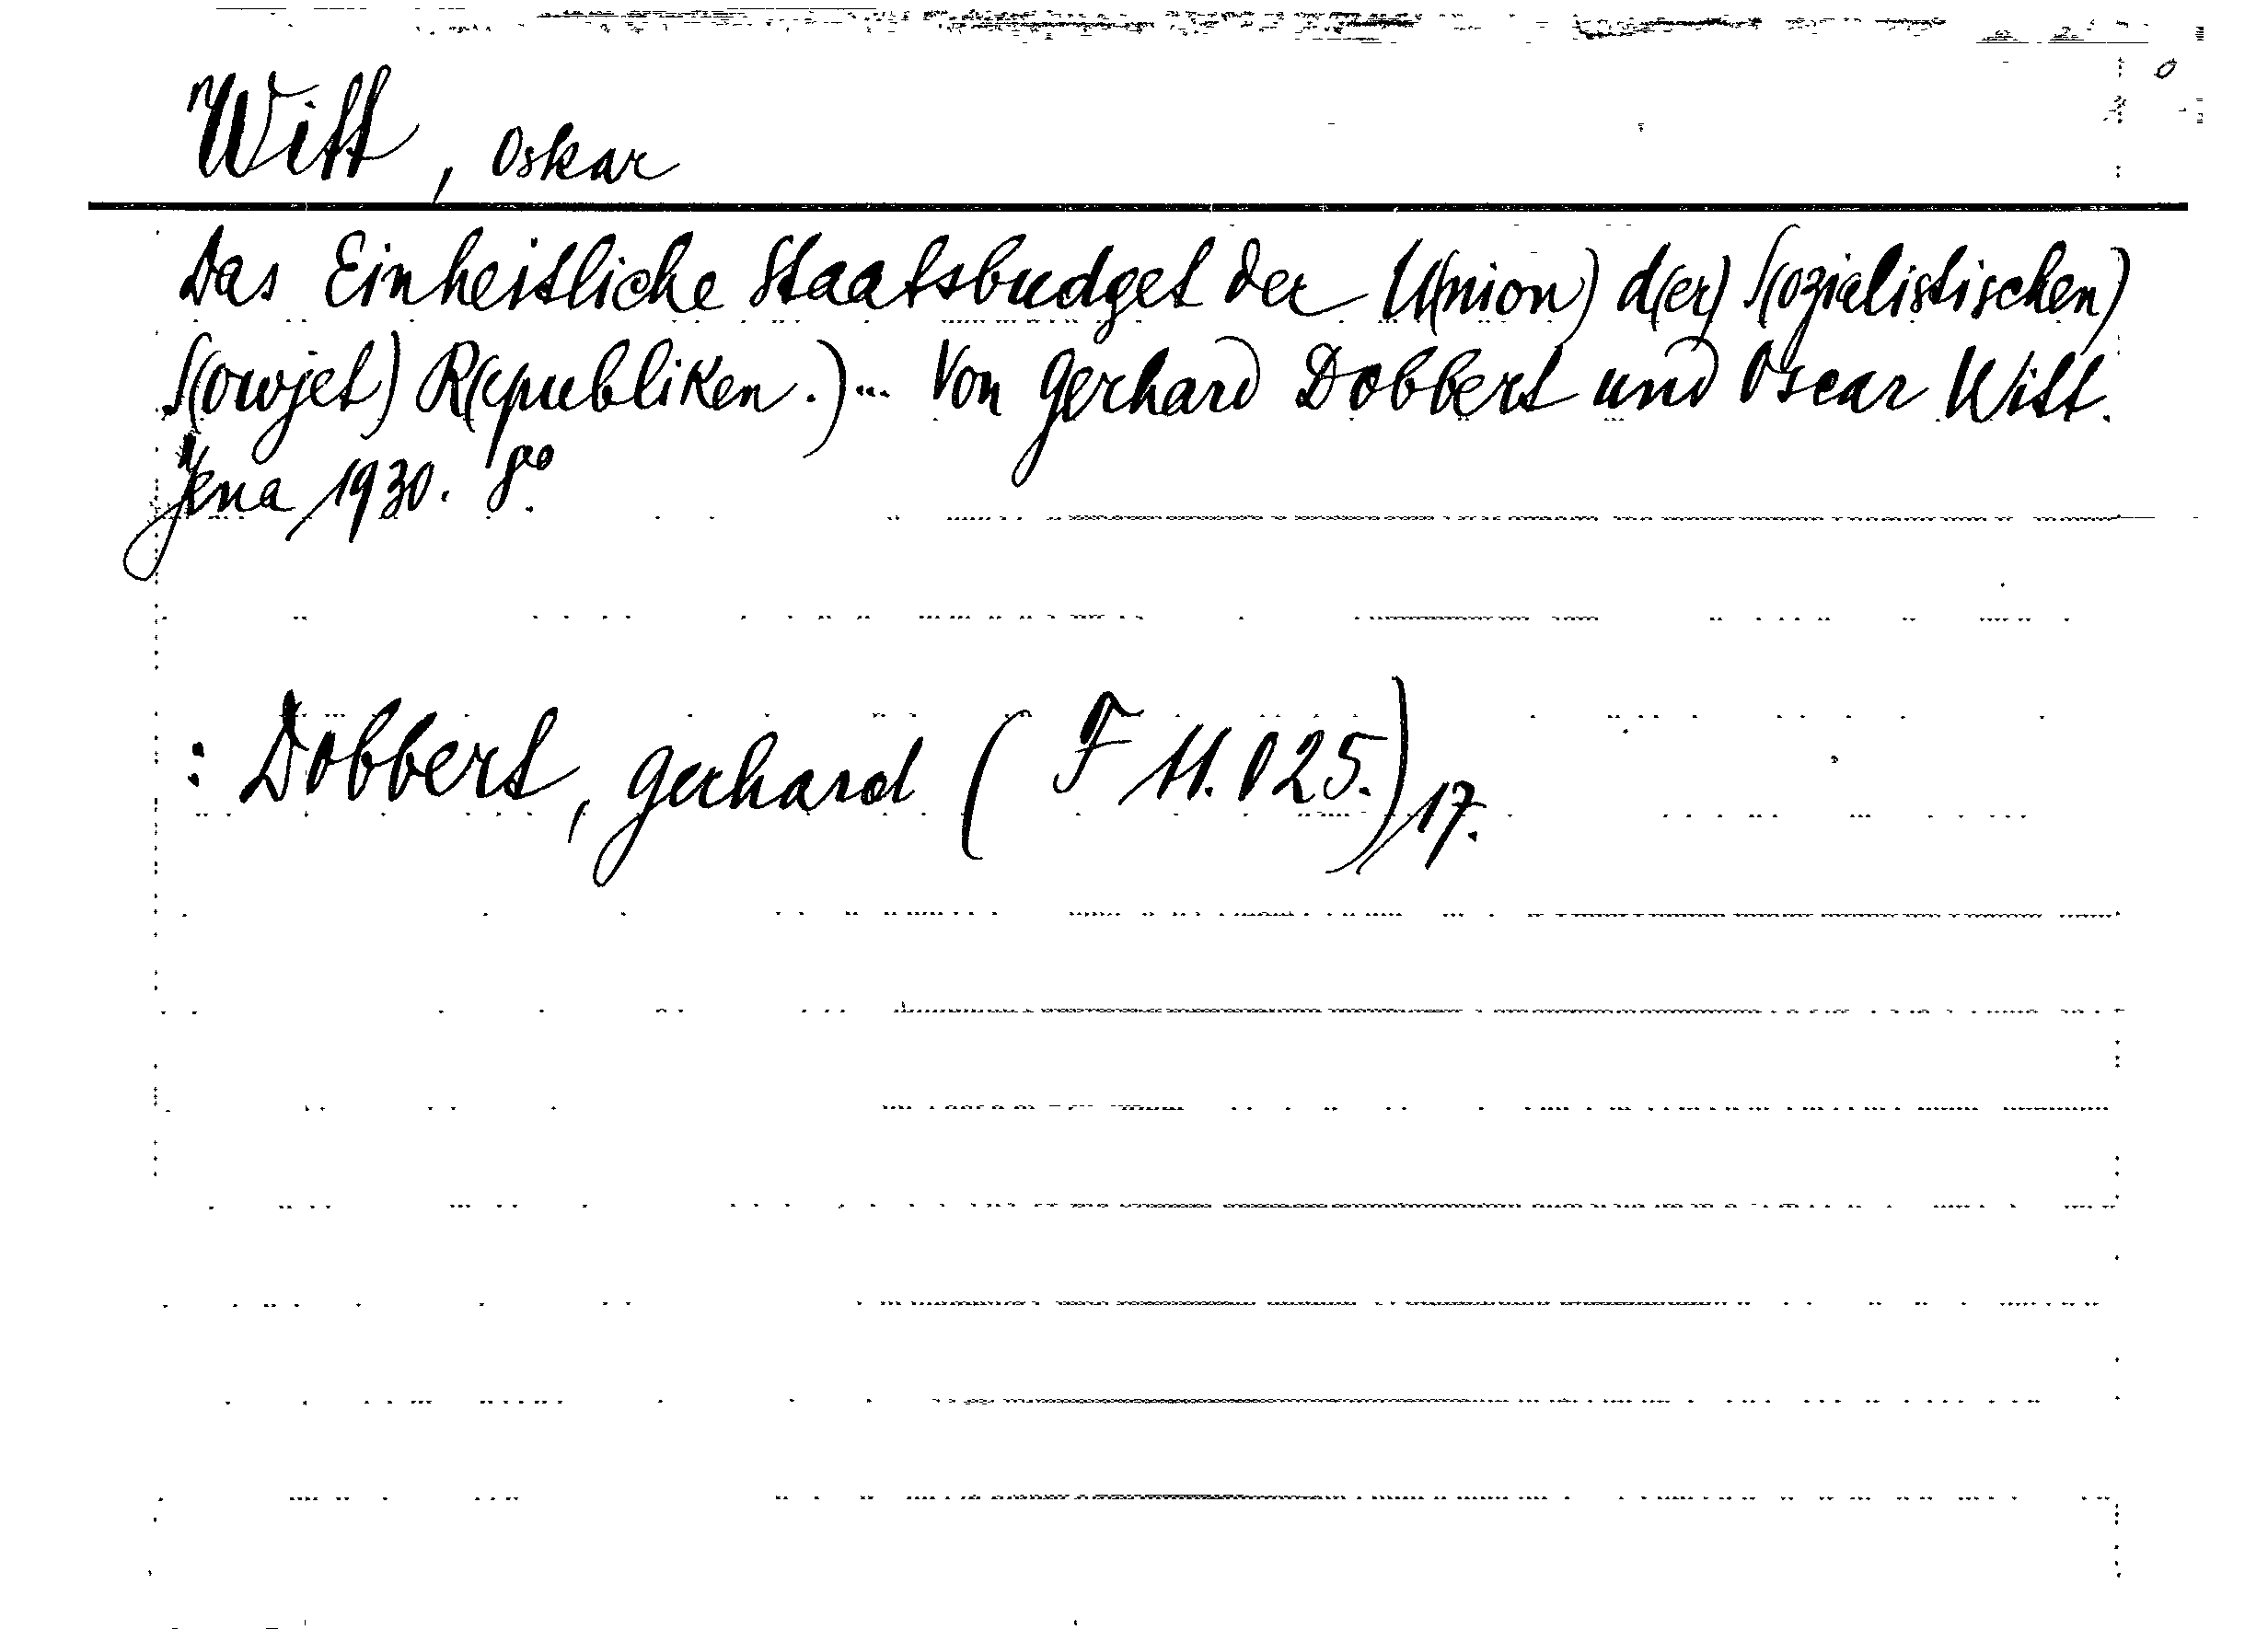 Witt, Oskar
Das Einheitliche Staatsbudget der U(nion) d(er) S(ozialistischen)
S(owjet) R(epubliken.)... Von Gerhard Dobbert und Oscar Witt.
Jena 1930. 8°.
: Dobbert, Gerhard (F 11.025.) 17.